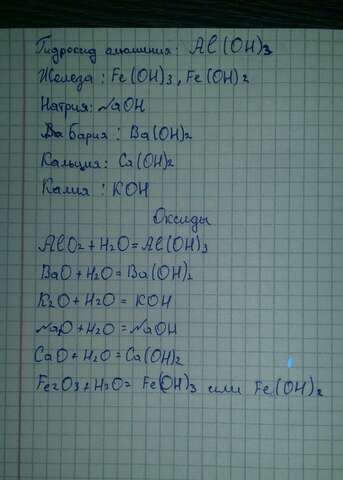 Гидроксид алюминия: Al(OH)3
Железа: Fe(OH)3, Fe(OH)2
Натрия: NaOH
Ва бария: Ba(OH)2
Кальция: Ca(OH)2
Калия: KOH
Оксиды
AlO2 + H2O = Al(OH)3
BaO + H2O = Ba(OH)2
K2O + H2O = KOH
NaO + H2O = NaOH
CaO + H2O = Ca(OH)2
Fe2O3 + H2O = Fe(OH)3 или Fe(OH)2